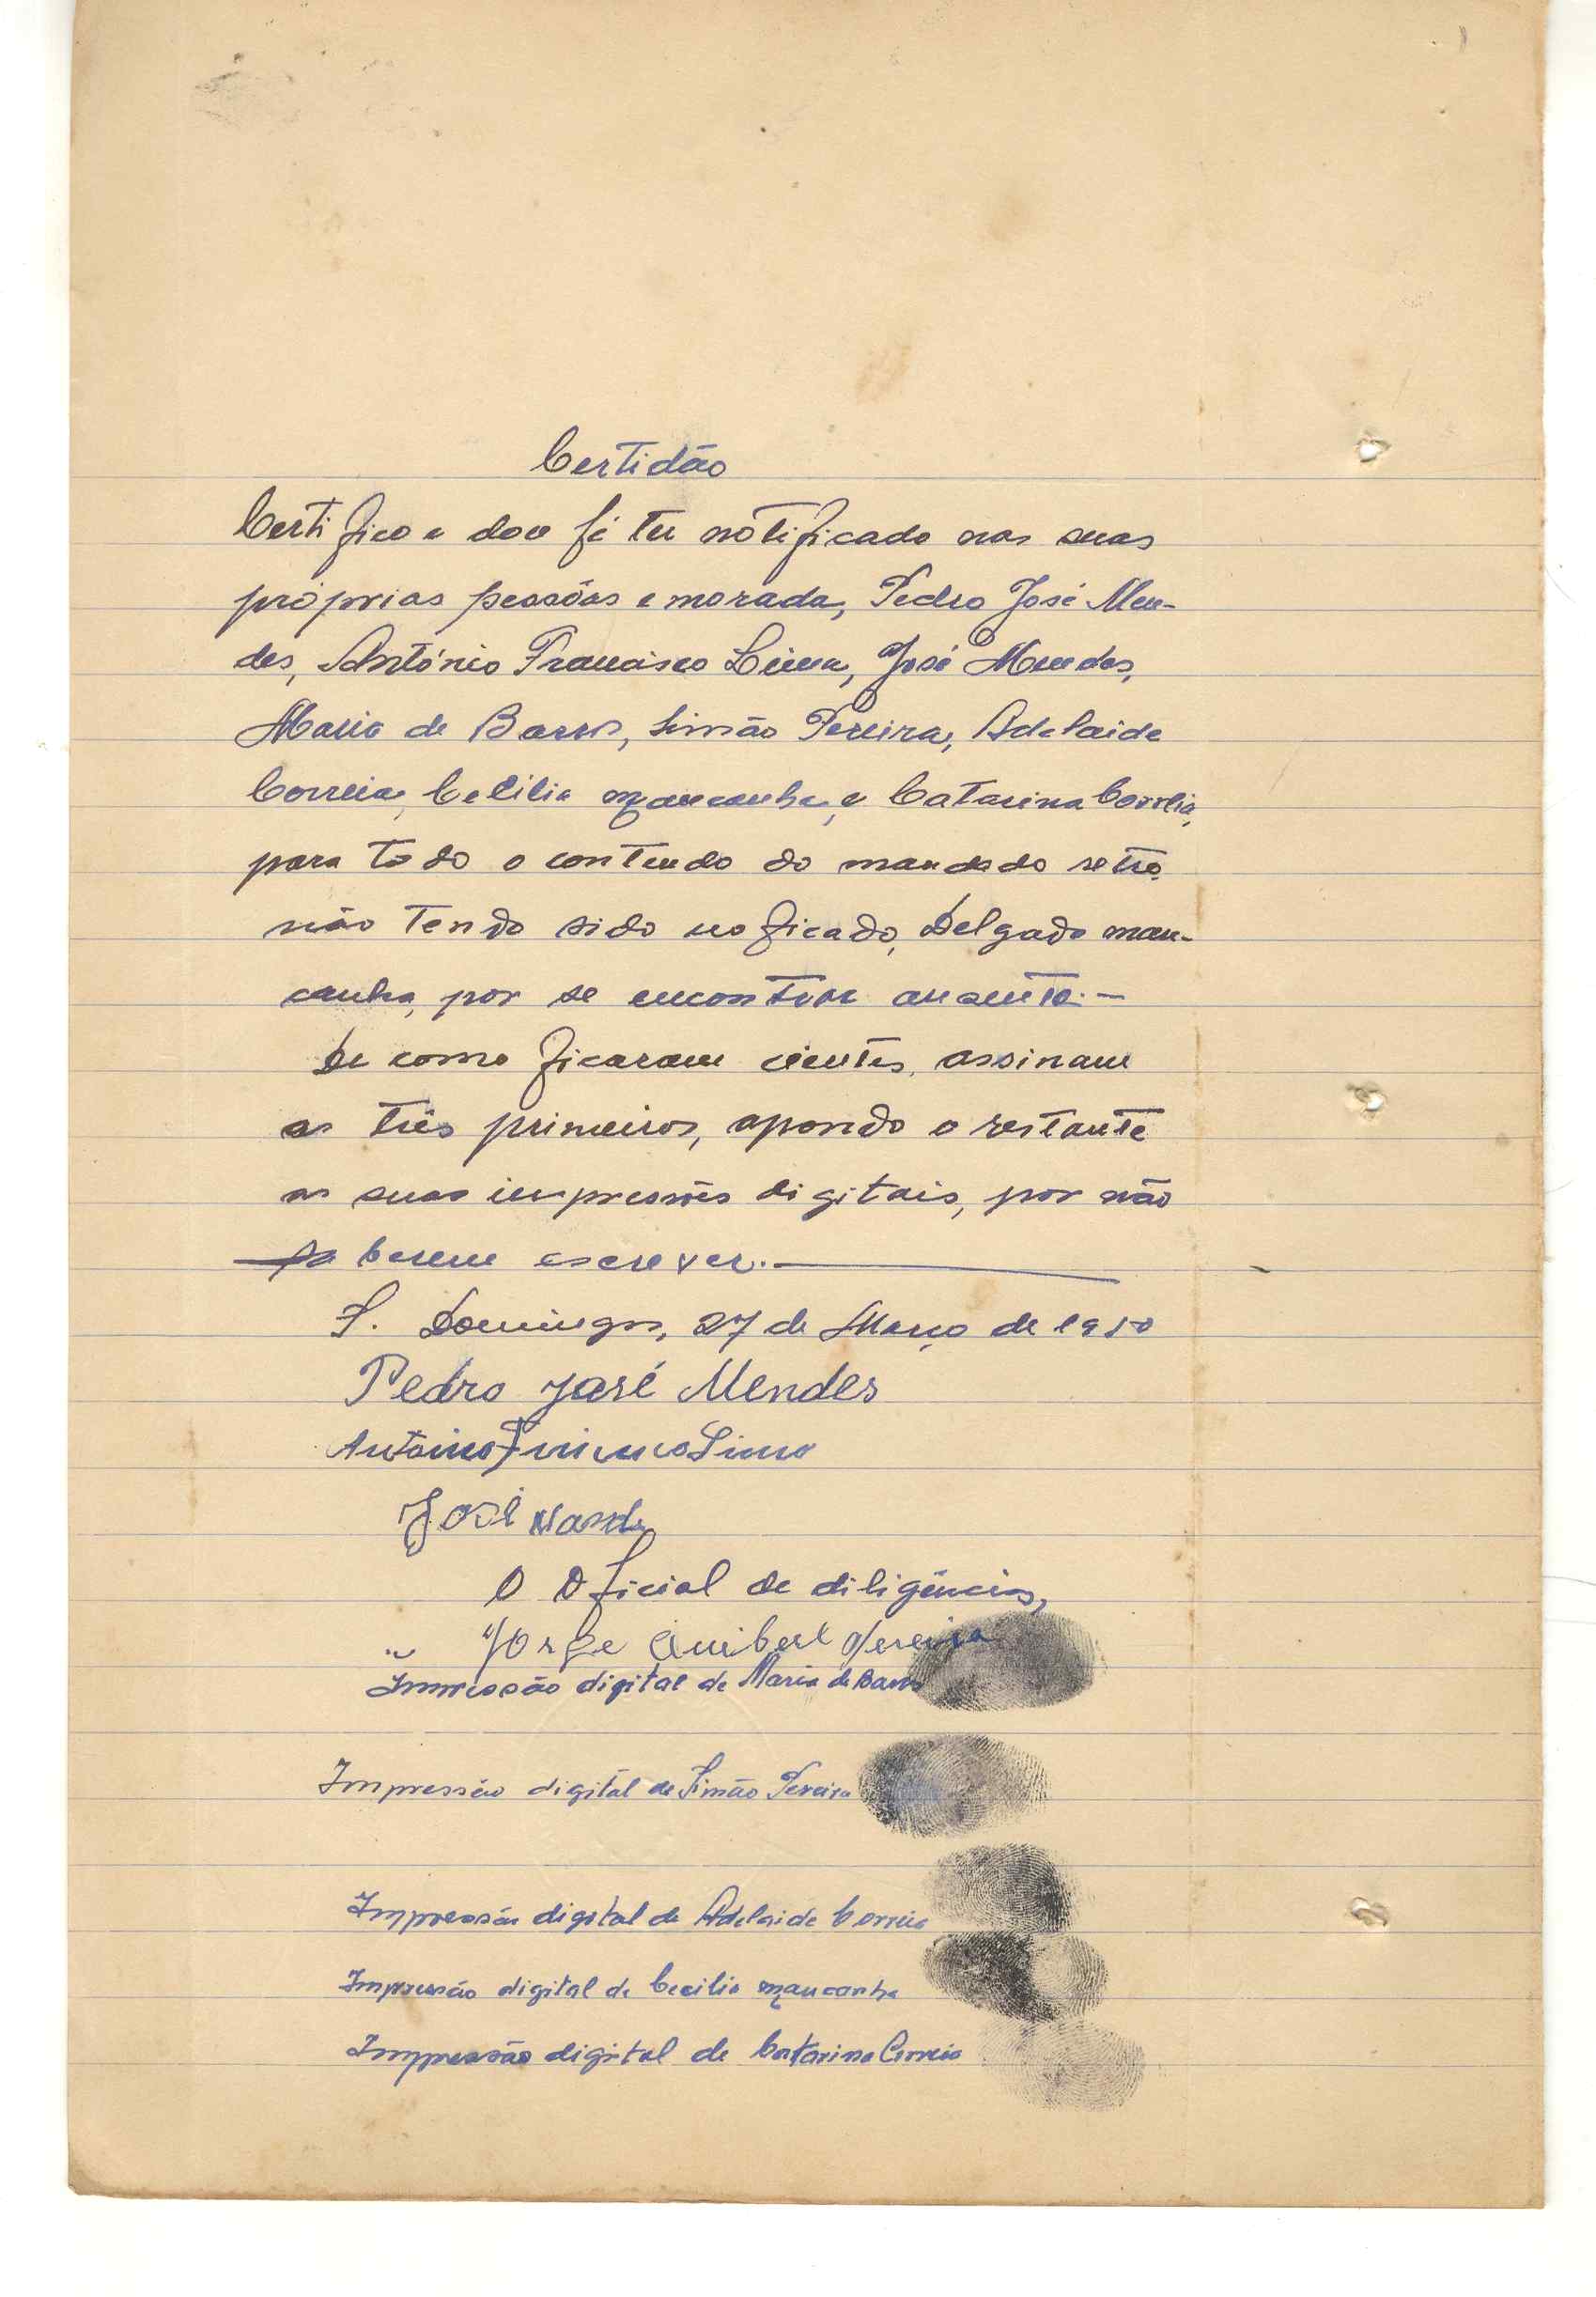 Certidão
Certifico e dou fé ter notificado nas suas
próprias pessôas e morada, Pedro José Men-
des, António Francisco Lima, José Mendes,
Maria de Barros, Simão Pereira, Adelaide
Correia, Cecilia mancanha, e Catarina Correia,
para todo o conteudo do mandado retro
não tendo sido noficado, Delgado man-
canha, por se encontrar ausente.-
De como ficaram cientes, assinam
os três primeiros, apondo o restante
as suas impressões digitais, por não
saberem escrever.
S. Domingos, 27 de Março de 1950
Pedro José Mendes
Lima
José
O Oficial de diligências,
Jorge Anibal Pereira
Impressão digital de Maria de Barros
Impressão digital de Simão Pereira
Impressão digital de Adelaide Correia
Impressão digital de Cecilia mancanha
Impressão digital de Catarina Correia